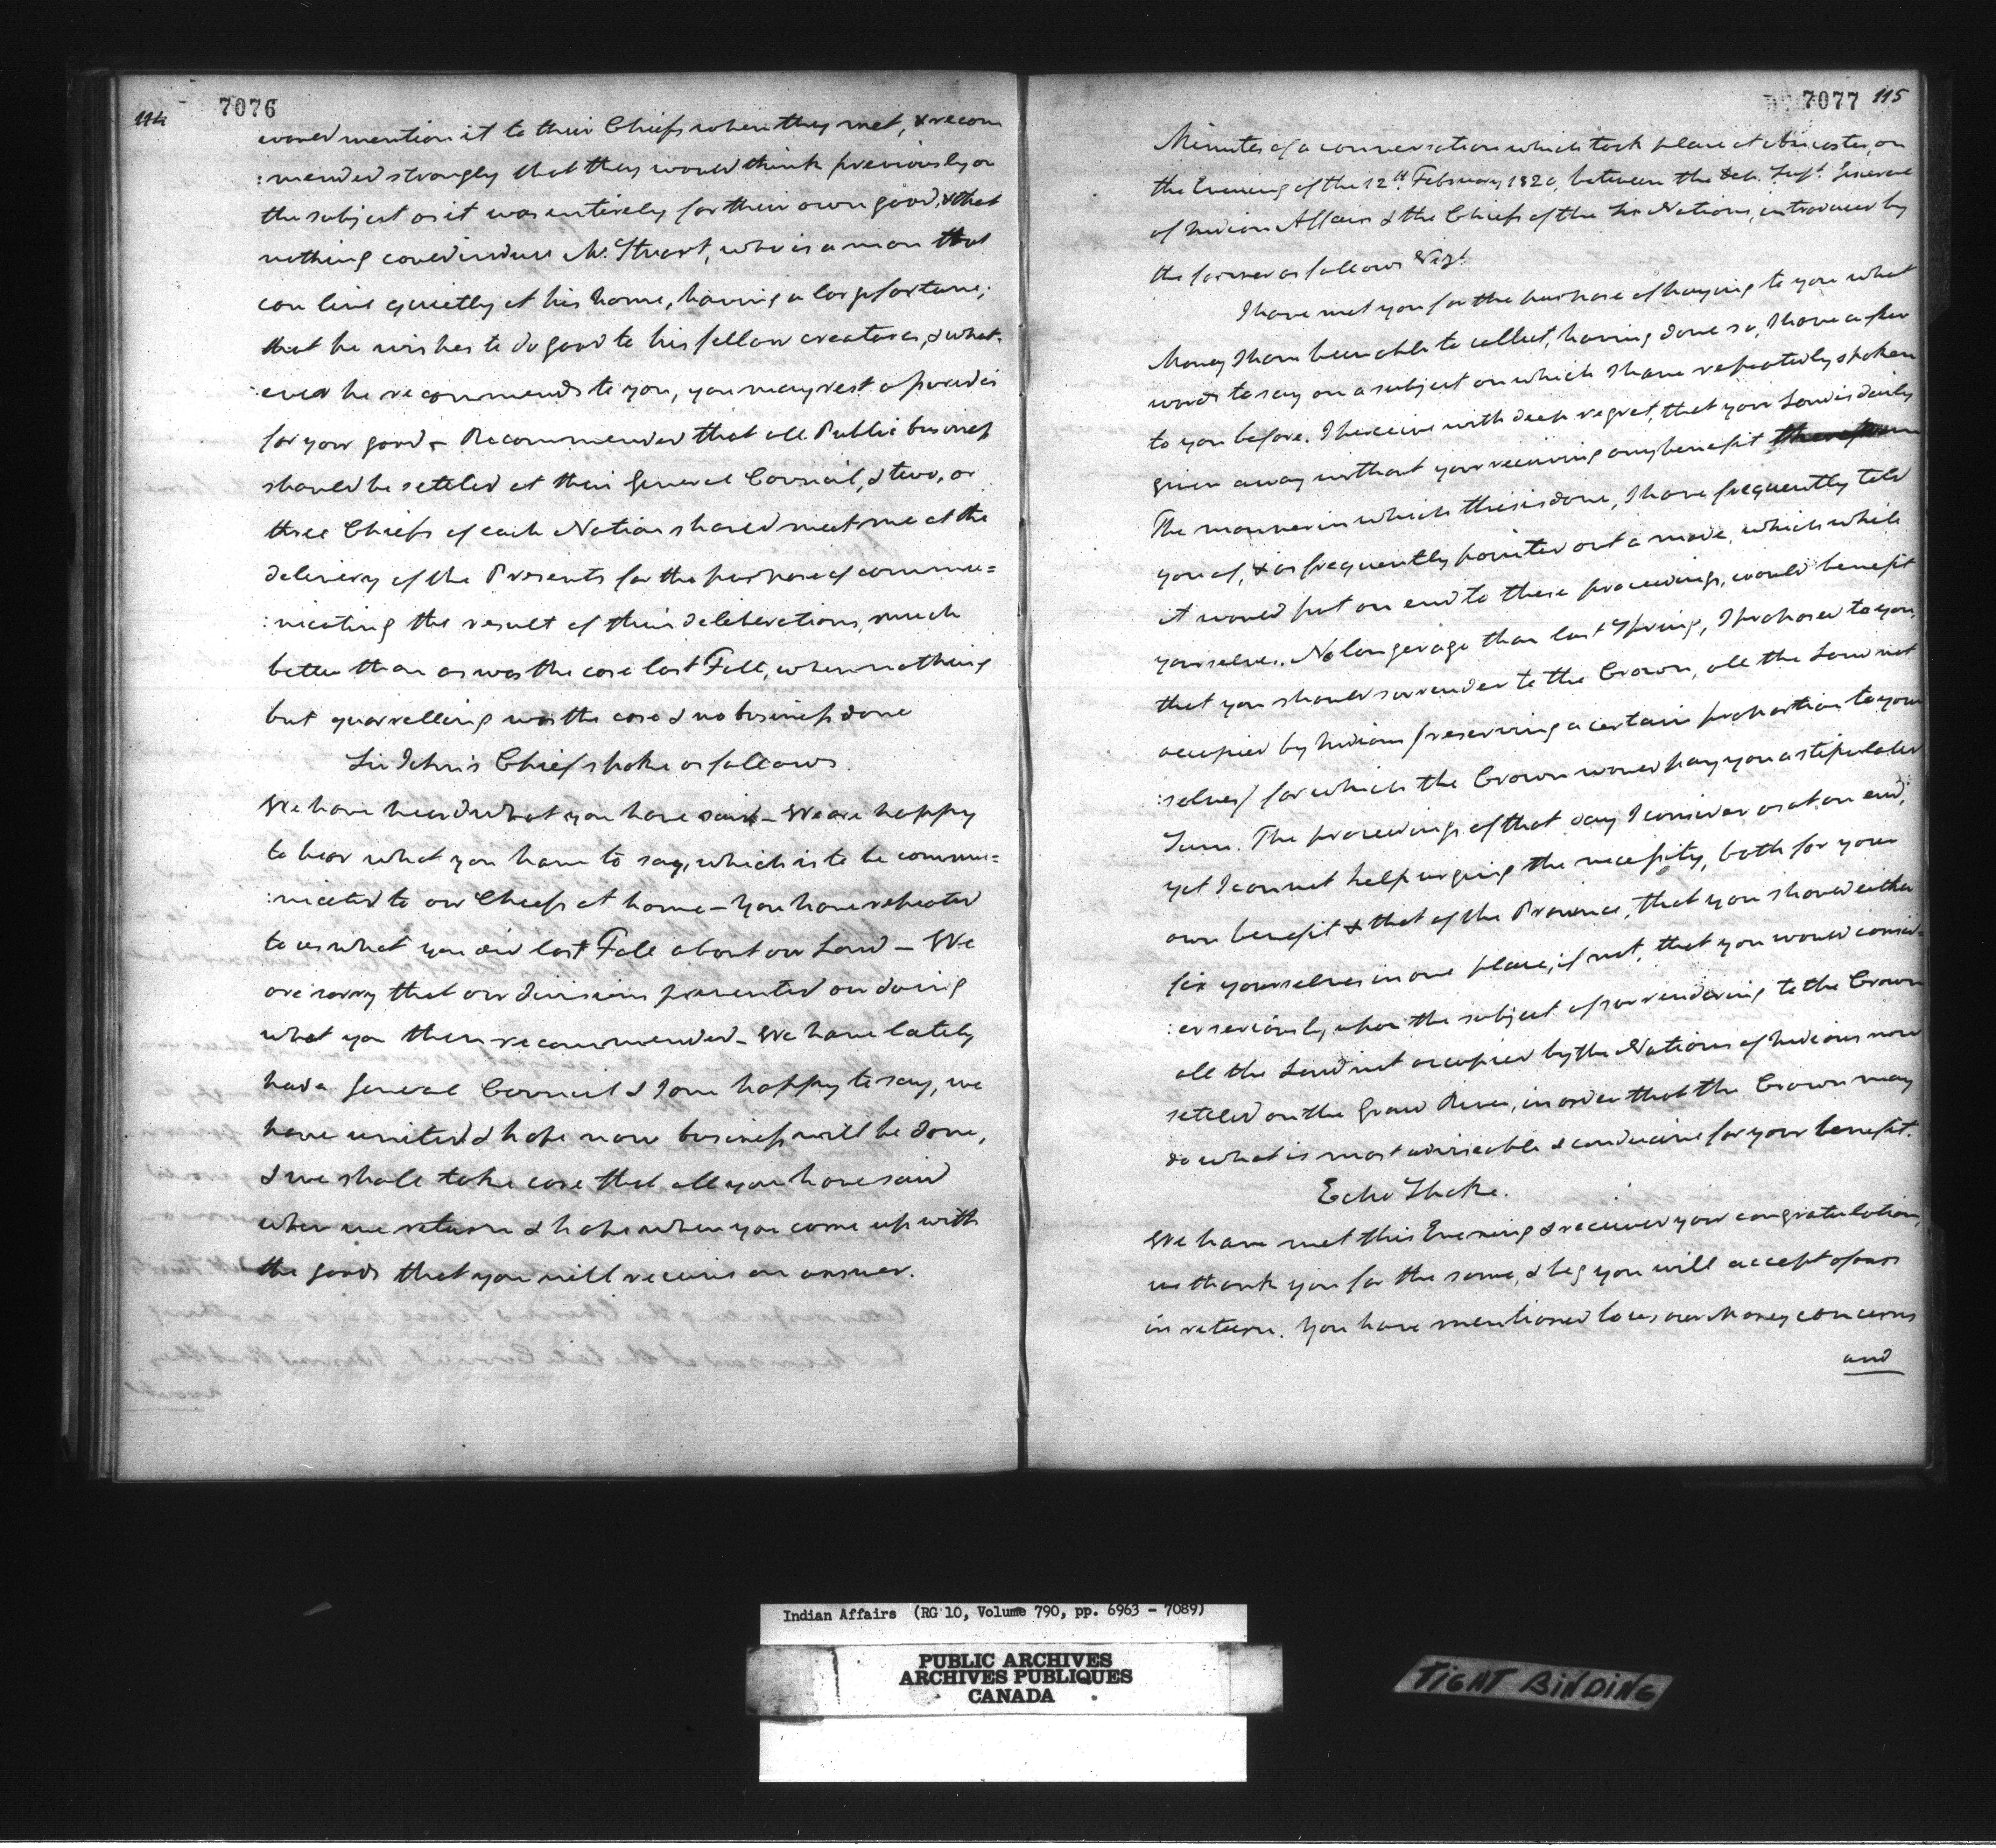 114
7076
would mention it to their Chiefs when they met, & recom
:mended strongly that they would think previously on
the subject as it was entirely for their own good, & that
nothing could induce Mr. Stuart, who is a man that
can live quietly at his home, having a large fortune;
that he wishes to do good to his fellow creatures, & what-
:ever he recommends to you, you may rest assured is
for your good – Recommended that all Public business
should be settled at their General Council, & two, or
three Chiefs of each Nation should meet me at the
delivery of the Presents for the purpose of commu=
:nicating the result of their deliberations, much
better than as was the case last Fall, when nothing
but quarrelling was the case & no business done
Sir John's Chief spoke as follows.
We have heard what you have said – We are happy
to hear what you have to say, which is to be commu=
:nicated to our Chiefs at home – You have repeated
to us what you did last Fall about our Land – We
are sorry that our divisions prevented our doing
what you then recommended – We have lately
had a General Council & I am happy to say, we
have united & hope now business will be done,
& we shall take care that all you have said
when we return & hope when you come up with
the goods that you will receive an answer.
7077 115
Minutes of a conversation which took place at Ancaster, on
the Evening of the 12th. February 1820, between the Dep. Supt. General
of Indian Affairs & the Chiefs of the Six Nations, introduced by
the former as follows Vizt.
I have met you for the purpose of paying to you what
Money I have been able to collect, having done so, I have a few
words to say on a subject on which I have repeatedly spoken
to you before. I perceive with deep regret, that your Land is daily
given away without your receiving any benefit
The manner in which this is done, I have frequently told
you of, & as frequently pointed out a mode, which while
it would put an end to these proceedings, would benefit
yourselves. No longer ago than last Spring, I proposed to you,
that you should surrender to the Crown, all the Land not
occupied by Indians (reserving a certain proportion to your
:selves) for which the Crown would pay you a stipulated
Sum. The proceedings of that day I consider as at an end,
yet I cannot help urging the necessity, both for your
own benefit & that of the Province, that you should either
fix yourselves in one place, if not, that you would consid=
:er seriously upon the subject of surrendering to the Crown
all the Land not occupied by the Nations of Indians now
settled on the Grand River, in order that the Crown may
do what is most adviseable & conducive for your benefit.
Echo Spoke.
We have met this Evening & received your congratulation,
we thank you for the same, & beg you will accept of ours
in return. You have mentioned to us our Money concerns
and
Indian Affairs (RG 10, Volume 790, pp. 6963 - 7089)
PUBLIC ARCHIVES
ARCHIVES PUBLIQUES
CANADA
TIGHT BINDING